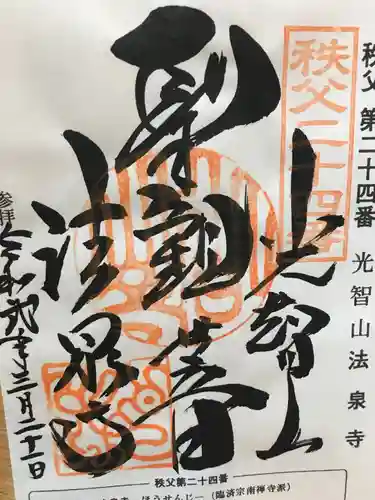 秩父 第二十四番 光智山法泉寺
秩父二十四番
光智山
聖観音
法泉寺
参拝
令和弐年三月二十一日
秩父第二十四番
ほうせんじ ー (臨済宗南禅寺派)